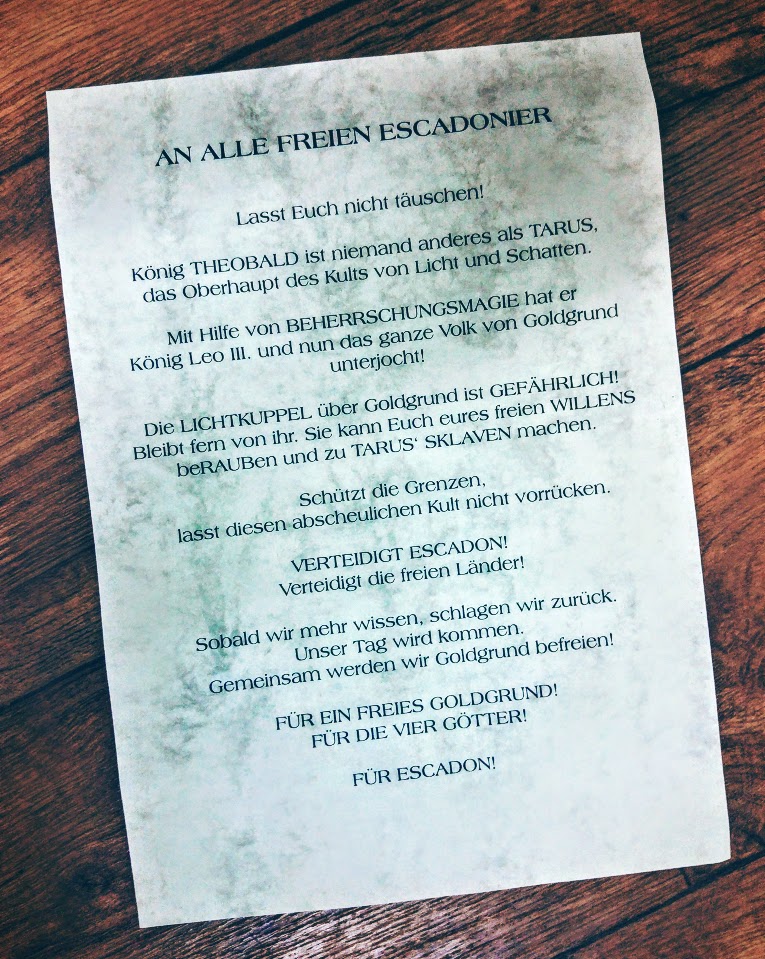 AN ALLE FREIEN ESCADONIER
Lasst Euch nicht täuschen!
König THEOBALD ist niemand anderes als TARUS,
das Oberhaupt des Kults von Licht und Schatten.
Mit Hilfe von BEHERRSCHUNGSMAGIE hat er
König Leo III. und nun das ganze Volk von Goldgrund
unterjocht!
Die LICHTKUPPEL über Goldgrund ist GEFÄHRLICH!
Bleibt fern von ihr. Sie kann Euch eures freien WILLENS
beRAUBen und zu TARUS‘ SKLAVEN machen.
Schützt die Grenzen,
lasst diesen abscheulichen Kult nicht vorrücken.
VERTEIDIGT ESCADON!
Verteidigt die freien Länder!
Sobald wir mehr wissen, schlagen wir zurück.
Unser Tag wird kommen.
Gemeinsam werden wir Goldgrund befreien!
FÜR EIN FREIES GOLDGRUND!
FÜR DIE VIER GÖTTER!
FÜR ESCADON!